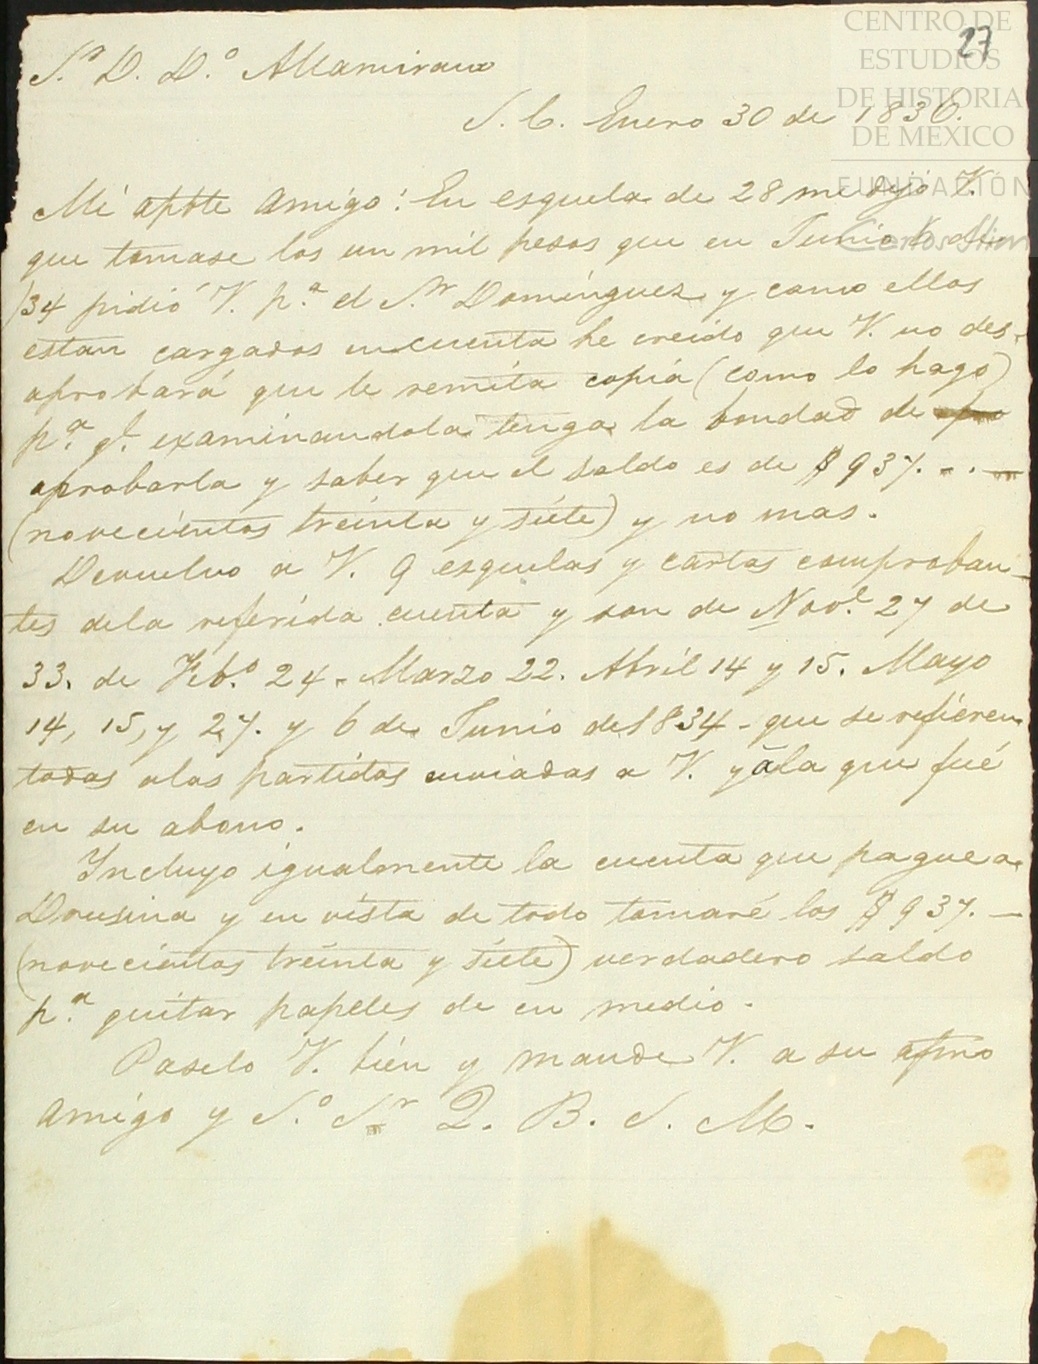 CENTRO DE
ESTUDIOS
DE HISTORIA
DE MEXICO
FUNDACIÓN
Carlos Slim
27
S.r D. D.o Altamirano
S. C. Enero 30 de 1836.
Mi apbte amigo: En esquela de 28 me dijó V.
que tomase los un mil pesos que en Junio 6 de
/34 pidió V. p.a el S.r Dominguez y como ellos
estan cargados en cuenta he creido que V. no des-
aprobará que le remita copia (como lo hago)
p.a q.e examinandola tenga la bondad de
aprobarla y saber que el saldo es de $ 937. - . -
(novecientos treinta y siete) y no mas.
Devuelvo a V. 9 esquelas y cartas comproban-
tes dela referida cuenta y son de Nov.e 27 de
33. de Feb.o 24. Marzo 22. Abril 14 y 15. Mayo
14, 15, y 27. y 6 de Junio de 1834 - que se refieren
todas alas partidas enviadas a V. y ála que fué
en su abono.
Incluyo igualmente la cuenta que pague a
Drusina y en vista de todo tomaré los $ 937. -
(novecientos treinta y siete) verdadero saldo
p.a quitar papeles de en medio.
Paselo V. bién y mande V. a su afmo
Amigo y S.o S.r Q. B. S. M.